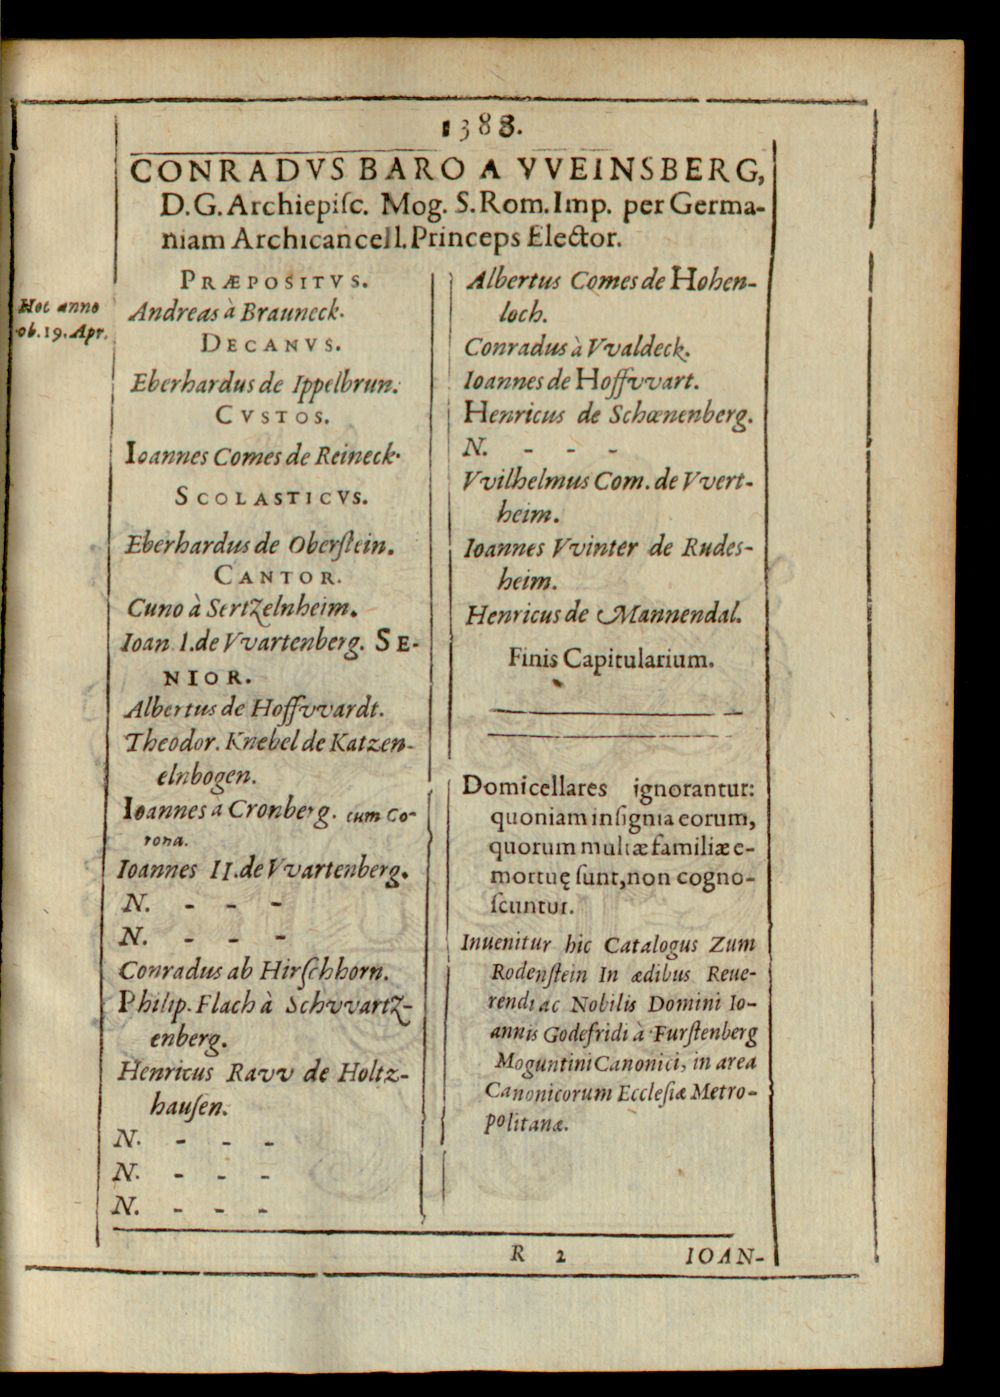 1388.
CONRADVS BARO A VVEINSBERG,
D.G. Archiepiſc. Mog. S. Rom. Imp. per Germa-
niam Archicancell. Princeps Elector.
Hoc anno
ob. 19. Apr.
PRÆPOSITVS.
Andreas à Brauneck.
DECANVS.
Eberhardus de Ippelbrun.
CVSTOS.
Ioannes Comes de Reineck.
SCOLASTICVS.
Eberhardus de Oberſtein.
CANTOR.
Cuno à Sertzelnheim.
Ioan I. de Vvartenberg. SE-
NIOR.
Albertus de Hoffvvardt.
Theodor. Knebel de Katzen-
elnbogen.
Ioannes a Cronberg. cum Co-
rona.
Ioannes II. de Vvartenberg.
N. - - -
N. - - -
Conradus ab Hirſchhorn.
Philip. Flach à Schvvartz-
enberg.
Henricus Ravv de Holtz-
hauſen.
N. - - -
N. - - -
N. - - -
Albertus Comes de Hohen-
loch.
Conradus à Vvaldeck.
Ioannes de Hoffvvart.
Henricus de Schœnenberg.
N. - - -
Vvilhelmus Com. de Vvert-
heim.
Ioannes Vvinter de Rudes-
heim.
Henricus de Mannendal.
Finis Capitularium.
Domicellares ignorantur:
quoniam inſignia eorum,
quorum multæ familiæ e-
mortuę ſunt, non cogno-
ſcuntur.
Inuenitur hic Catalogus Zum
Rodenſtein In ædibus Reue-
rendi ac Nobilis Domini Io-
annis Godefridi à Furſtenberg
Moguntini Canonici, in area
Canonicorum Eccleſiæ Metro-
politanæ.
R 2 IOAN-